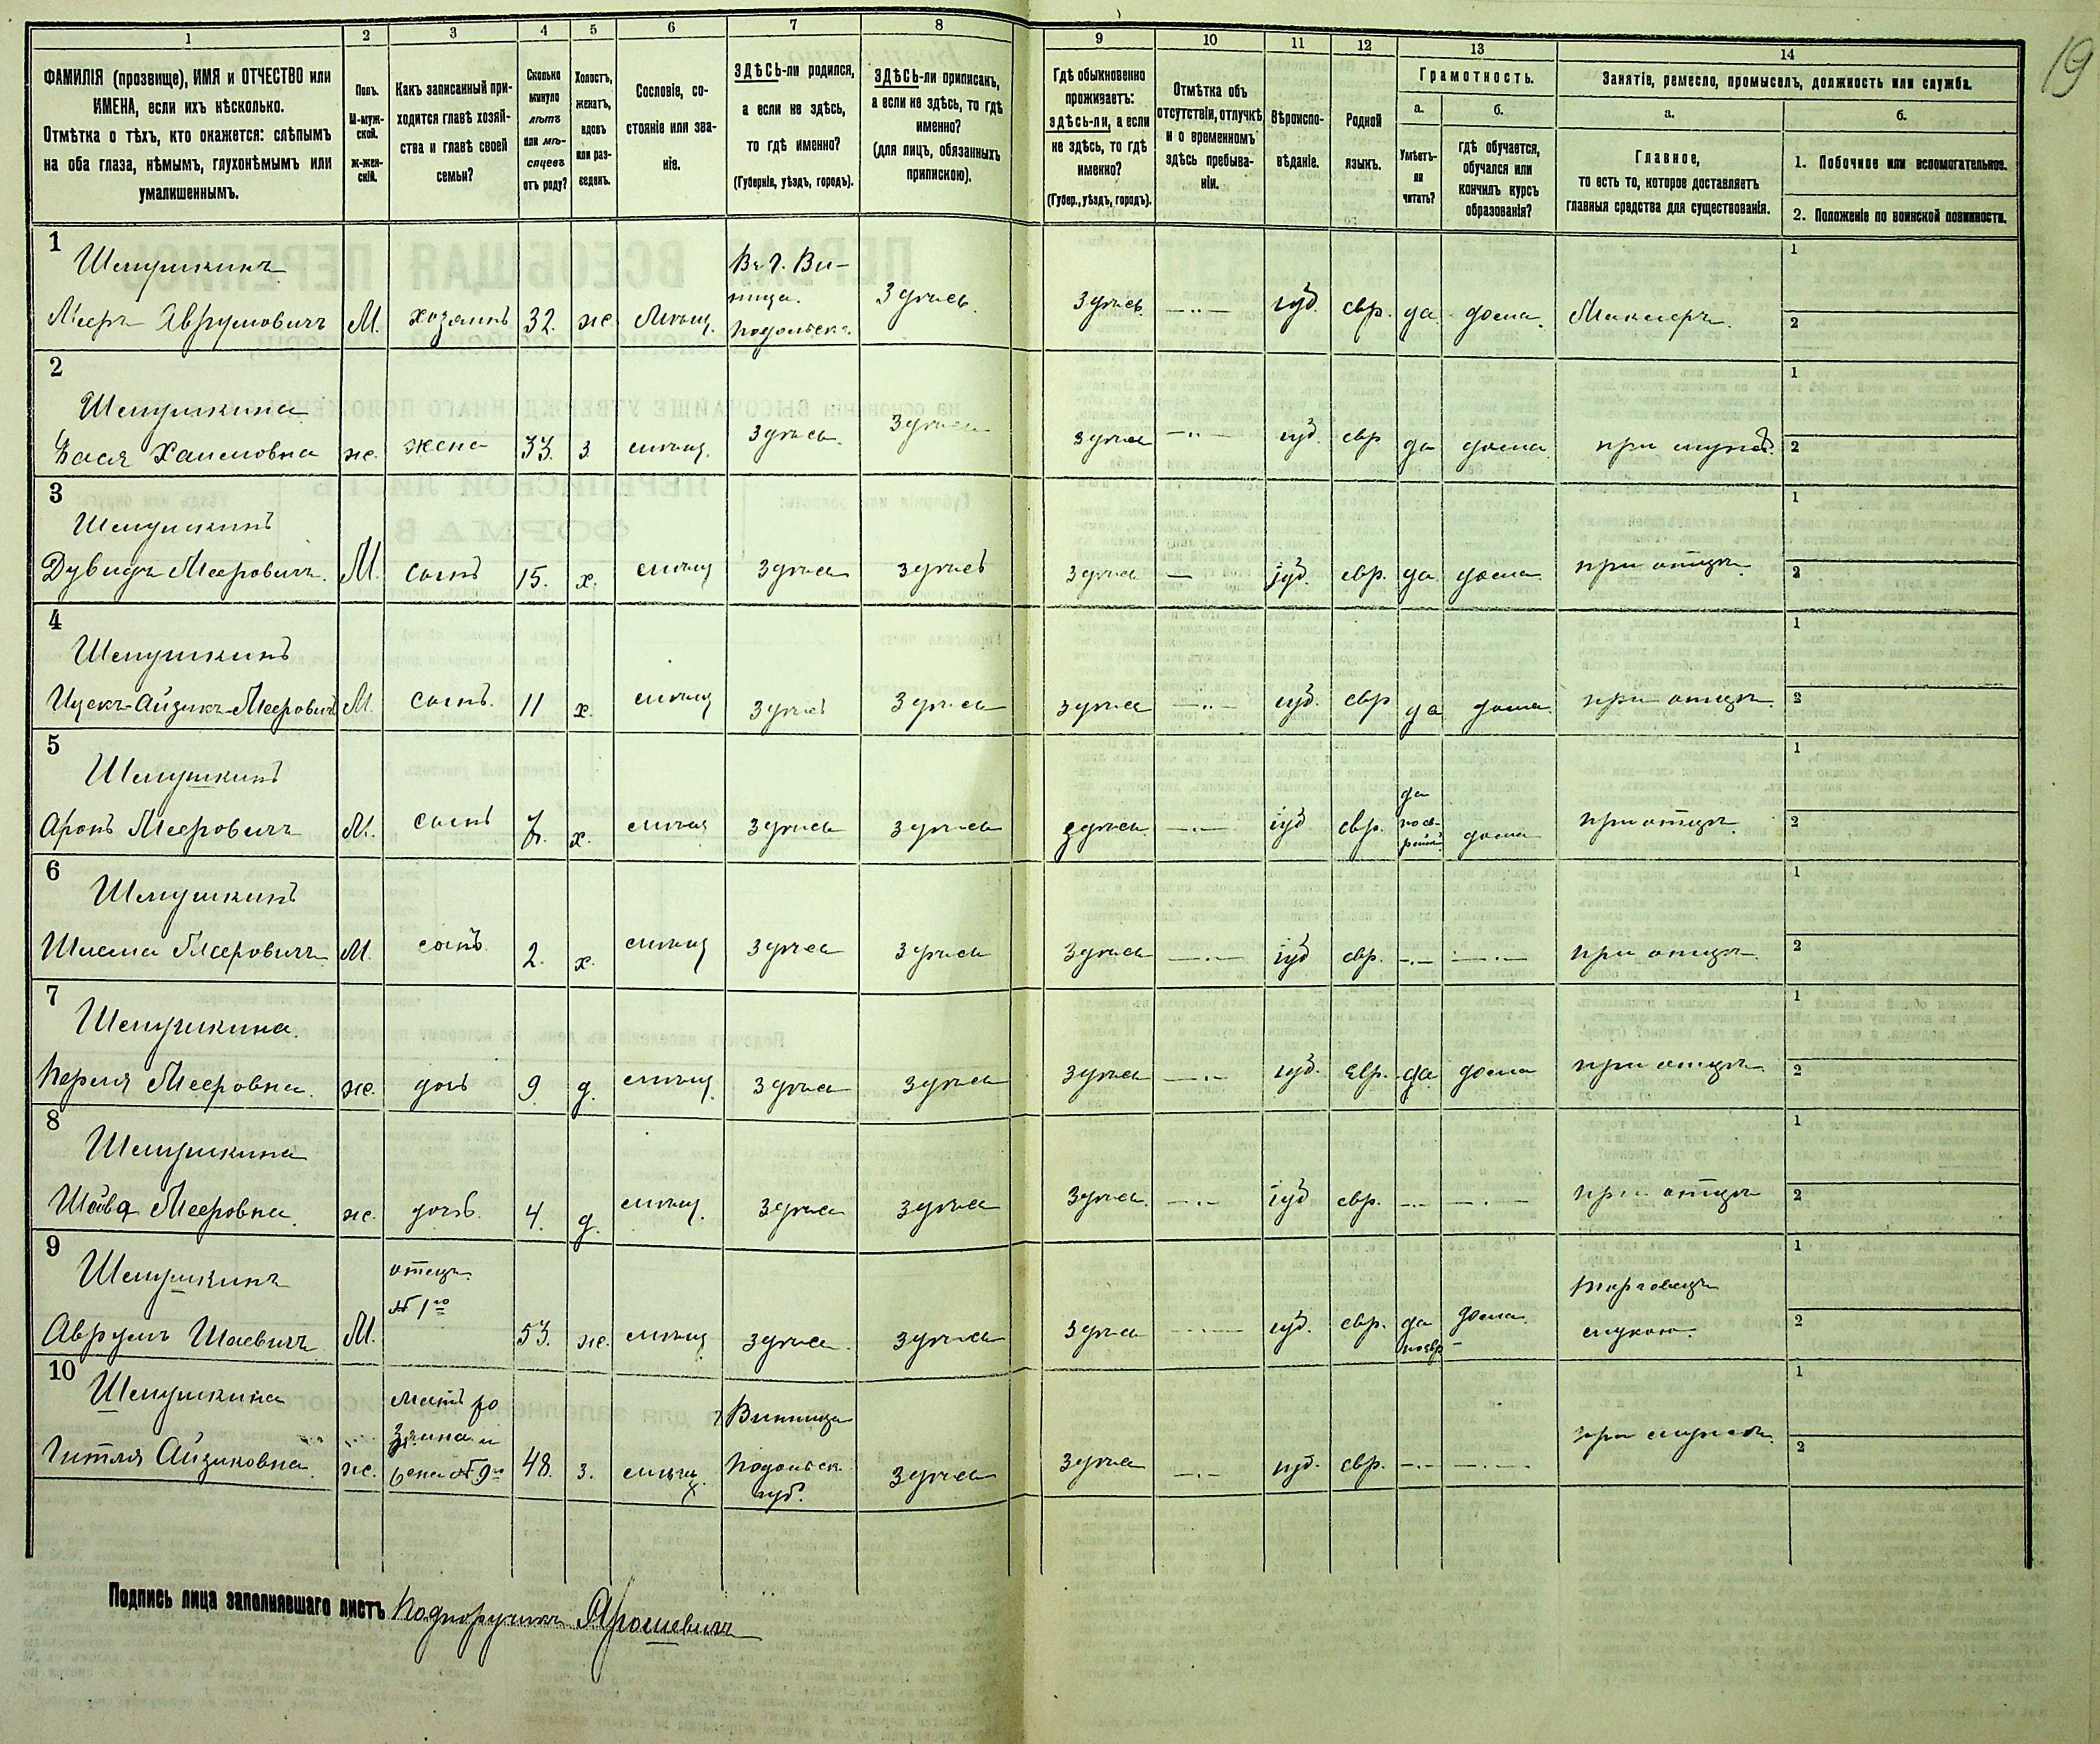 19
1 2 3 4 5 6 7 8 9 10 11 12 13 14
ФАМИЛІЯ (прозвище), ИМЯ и ОТЧЕСТВО или
ИМЕНА, если ихъ нѣсколько.
Отмѣтка о тѣхъ, кто окажется: слѣпымъ
на оба глаза, нѣмымъ, глухонѣмымъ или
умалишеннымъ.
Полъ.
М-муж-
ской.
Ж-жен-
скій.
Какъ записанный при-
ходится главѣ хозяй-
ства и главѣ своей
семьи?
Сколько
минуло
лѣтъ
или мѣ-
сяцевъ
отъ роду?
Холостъ,
женатъ,
вдовъ
или раз-
веденъ.
Сословіе, со-
стояніе или зва-
ніе.
ЗДѢСЬ-ли родился,
а если не здѣсь,
то гдѣ именно?
(Губернія, уѣздъ, городъ).
ЗДѢСЬ-ли приписанъ,
а если не здѣсь, то гдѣ
именно?
(для лицъ, обязанныхъ
припискою).
Гдѣ обыкновенно
проживаетъ:
здѣсь-ли, а если
не здѣсь, то гдѣ
именно?
(Губер., уѣздъ, городъ).
Отмѣтка объ
отсутствіи, отлучкѣ
и о временномъ
здѣсь пребыва-
ніи.
Вѣроиспо-
вѣданіе.
Родной
языкъ.
Грамотность.
а.
Умѣетъ-
ли
читать?
б.
гдѣ обучается,
обучался или
кончилъ курсъ
образованія?
Занятіе, ремесло, промыселъ, должность или служба.
а.
Главное,
то есть то, которое доставляетъ
главныя средства для существованія.
б.
1. Побочное или вспомогательное.
2. Положеніе по воинской повинности.
1
Шемушкинъ
Мееръ Аврумовичъ М. хозяинъ 32. же. мѣщ.
Въ г. Ви-
ница.
Подольск.
Здѣсь. Здѣсь —..— іуд. евр. да дома. Маклеръ.
1
2
2
Шемушкина
Бася Хаимовна же. жена 33. з мѣщ. Здѣсь. Здѣсь Здѣсь —..— іуд. евр да дома. при мужѣ.
1
2
3
Шемушкинъ
Дувидъ Мееровичъ. М. сынъ 15. х. мѣщ Здѣсь Здѣсь Здѣсь — іуд. евр. да дома. при отцѣ.
1
2
4
Шемушкинъ
Ицекъ-Айзикъ-Мееровичъ М. сынъ. 11 х. мѣщ Здѣсь Здѣсь Здѣсь —..— іуд. евр да дома. при отцѣ.
1
2
5
Шемушкинъ
Аронъ Мееровичъ М. сынъ 7. х. мѣщ Здѣсь Здѣсь Здѣсь —.— іуд евр.
да
по ев-
рейски
дома при отцѣ.
1
2
6
Шемушкинъ
Шлема Мееровичъ М. сынъ. 2. х. мѣщ Здѣсь Здѣсь Здѣсь —.— іуд евр. —.— —.— при отцѣ
1
2
7
Шемушкина.
Перля Мееровна. же. дочь 9. д. мѣщ. Здѣсь Здѣсь Здѣсь —.— іуд. евр. да дома при отцѣ
1
2
8
Шемушкина
Шейва Мееровна. же. дочь. 4. д. мѣщ. Здѣсь Здѣсь Здѣсь. —.— іуд евр. —.— —.— при отцѣ
1
2
9
Шемушкинъ
Аврумъ Шаевичъ М.
отецъ.
№ 1го
53. же. мѣщ Здѣсь. Здѣсь Здѣсь —.— іуд. евр. да
по евр
дома.
Торговецъ
мукою.
1
2
10
Шемушкина
Гитля Айзиковна. же.
мать хо
зяина и
жена № 9го
48. з. мѣщ.
г Винница
Подольск
губ.
Здѣсь Здѣсь —.— іуд. евр. —.— —.— при мужѣ.
1
2
Подпись лица заполнявшаго листъ Подпоручикъ Ярошевичъ